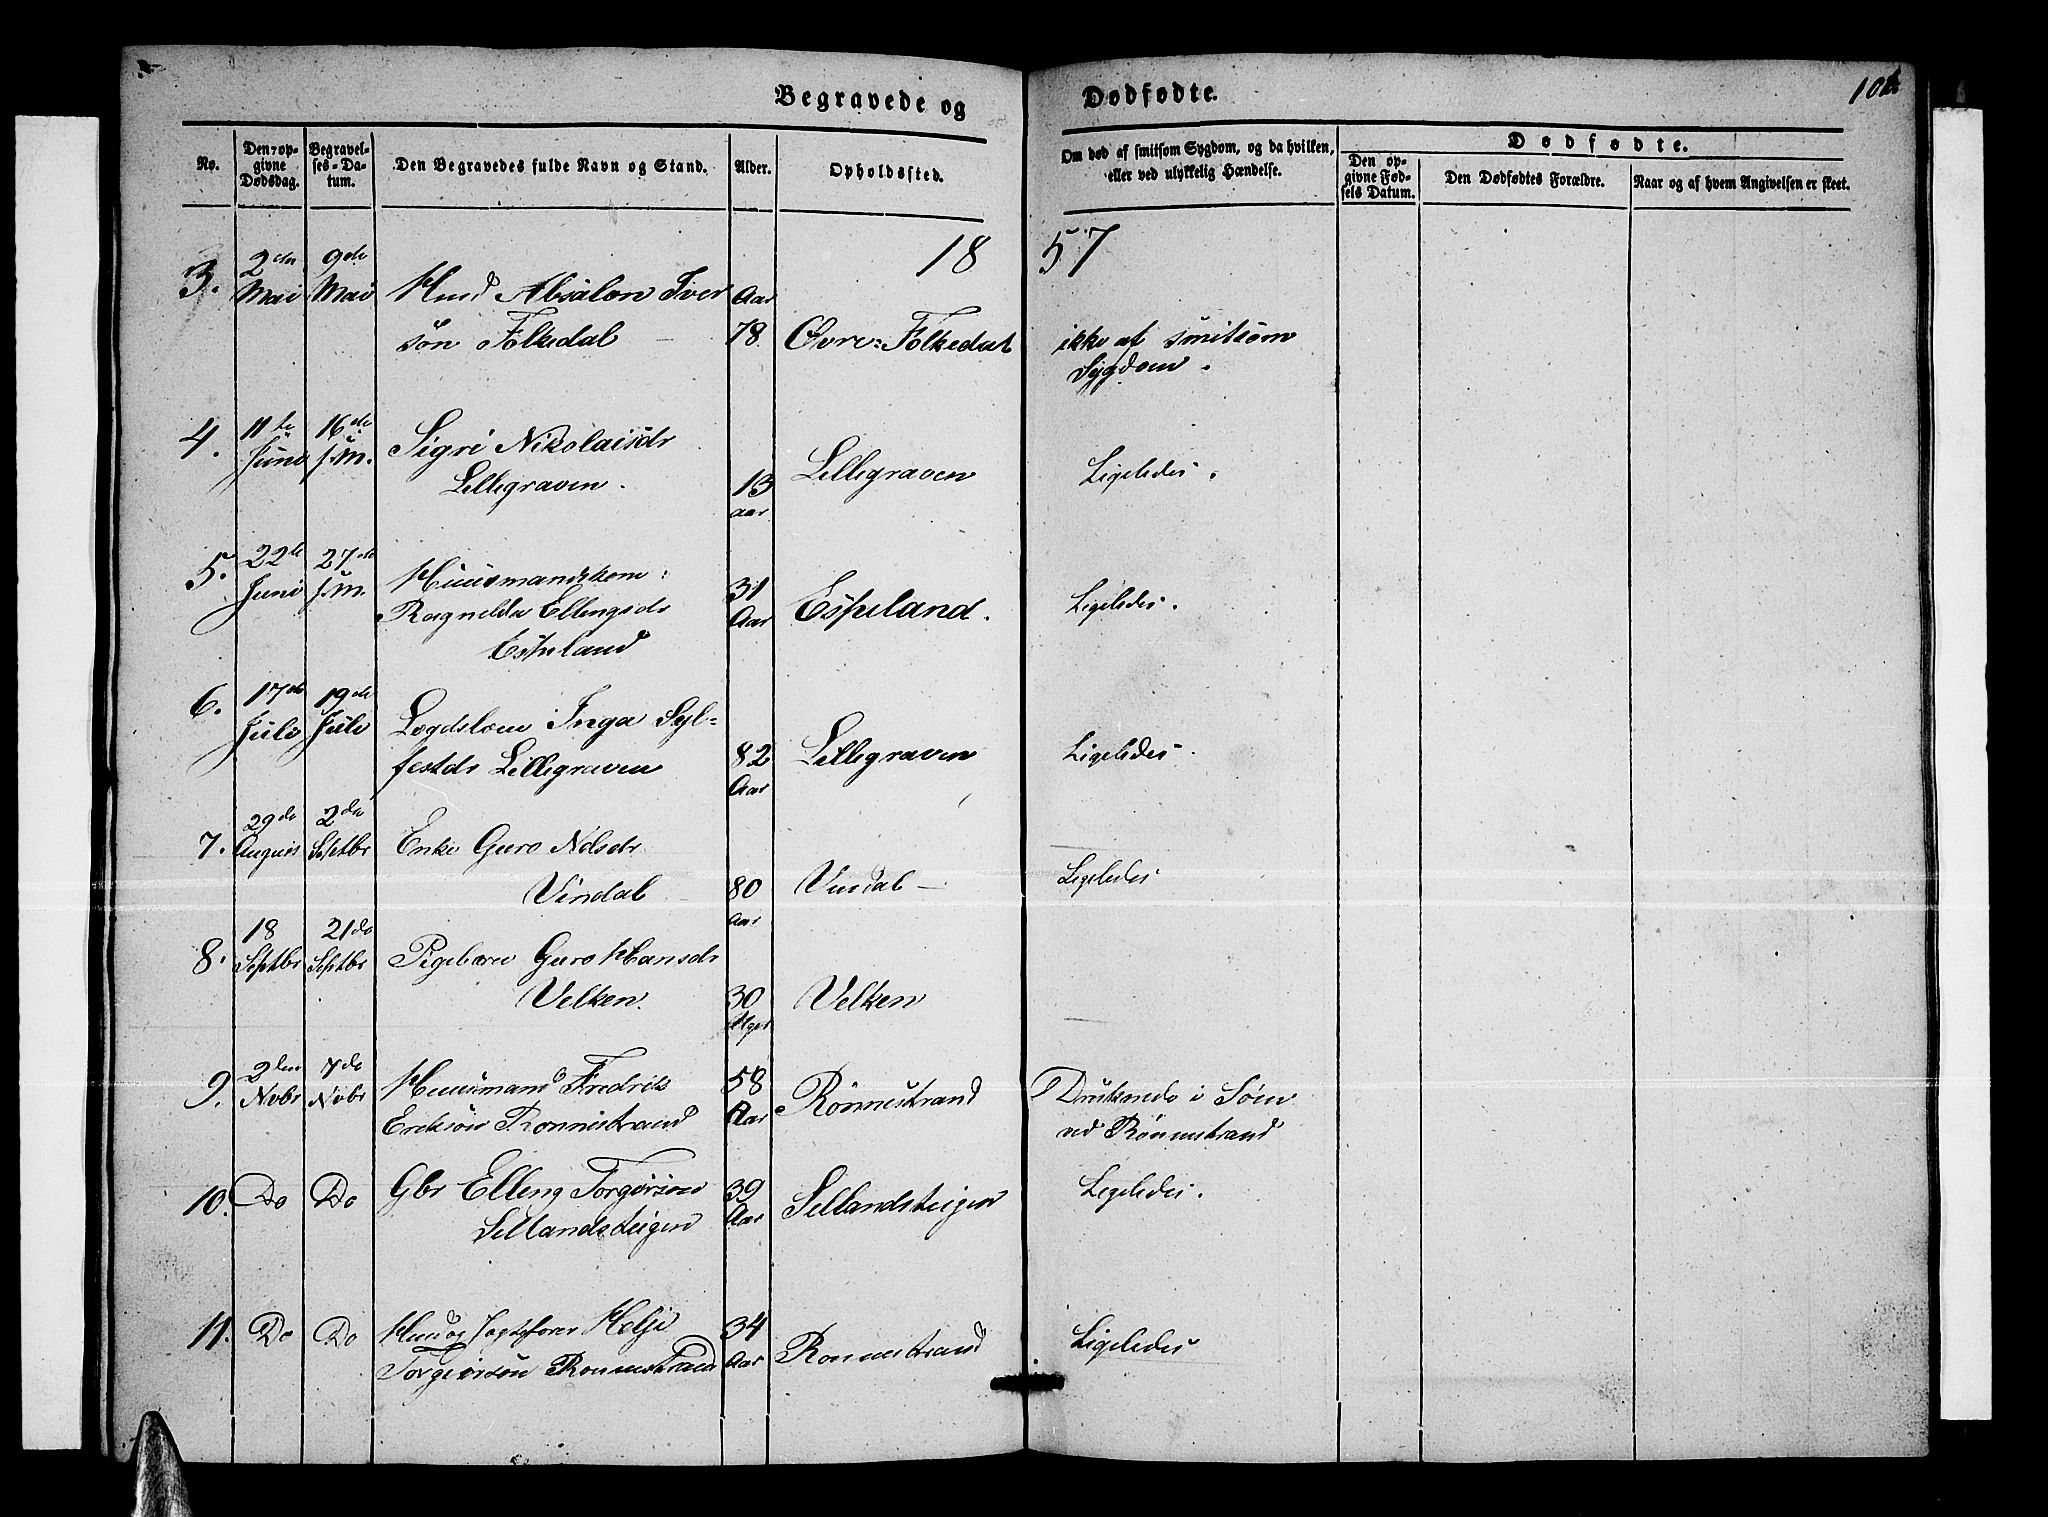 Begravede og
Dødfødte.
No.
Den op-
givne
Dødsdag.
Begravel-
ses-Da-
tum.
Den Begravedes fulde Navn og Stand.
Alder.
Opholdssted.
Om død af smitsom Sygdom, og da hvilken,
eller ved ulykkelig Hændelse.
Dødfødte.
Den op-
givne Fød-
sels Datum.
Den Dødfødtes Forældre.
Naar og af hvem Angivelsen er skeet.
18 57
3. 2den Mai 9de Mai Huusd Absalon Iver
søn Folkedal — Aar 78. Øvre=Folkedal ikke af smitsom
Sygdom.
4. 11te Juni 16de s.M. Sigri Nikolaisdr
Lillegraven. 13 aar Lillegraven Ligeledes.
5. 22de Juni 27de s.M. Huusmandskone:
Ragnilda Ellingsdr
Espeland 31 Aar Espeland. Ligeledes.
6. 17de Juli 19de Juli Lægdslem Inga Syl=
festdr Lillegraven 82 Aar Lillegraven Ligeledes.
7. 29de August 2den Septbr Enke Guro Nilsdr
Vindal 80 Aar Vindal — Ligeledes
8. 18 Septbr 21de Septbr Pigebarn Guro Hansdr
Velken. 30 Uger Velken
9. 2den Novbr 7de Novbr Huusmand Fredrik
Eriksøn Rønnestrand 58 Aar Rønnestrand Druknede i Søen
ved Rønnestrand
10. Do Do Gbr Elling Torgersøn
Sellandsteigen 39 Aar Sellandsteigen Ligeledes.
11. Do Do Huusd og Jagtefører Helje
Torgeirsøn Ronnestrand 34 Aar Ronnestrand Ligeledes